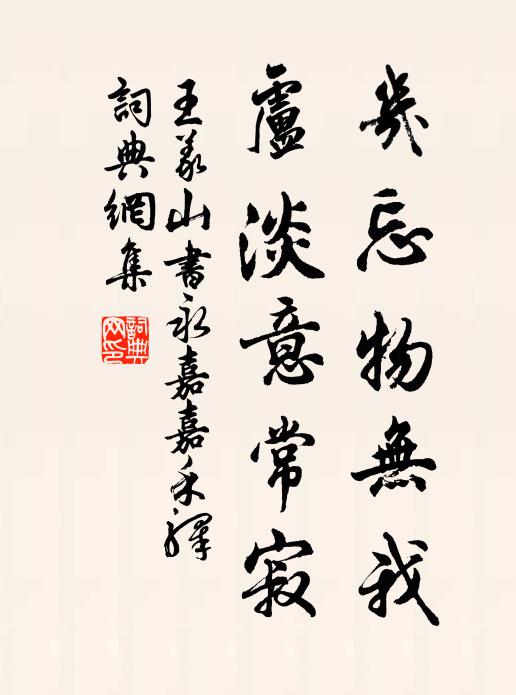 幾忘物無我
盧淡意常寂
王義山書永嘉嘉禾驛
詞典網集
詞典網印